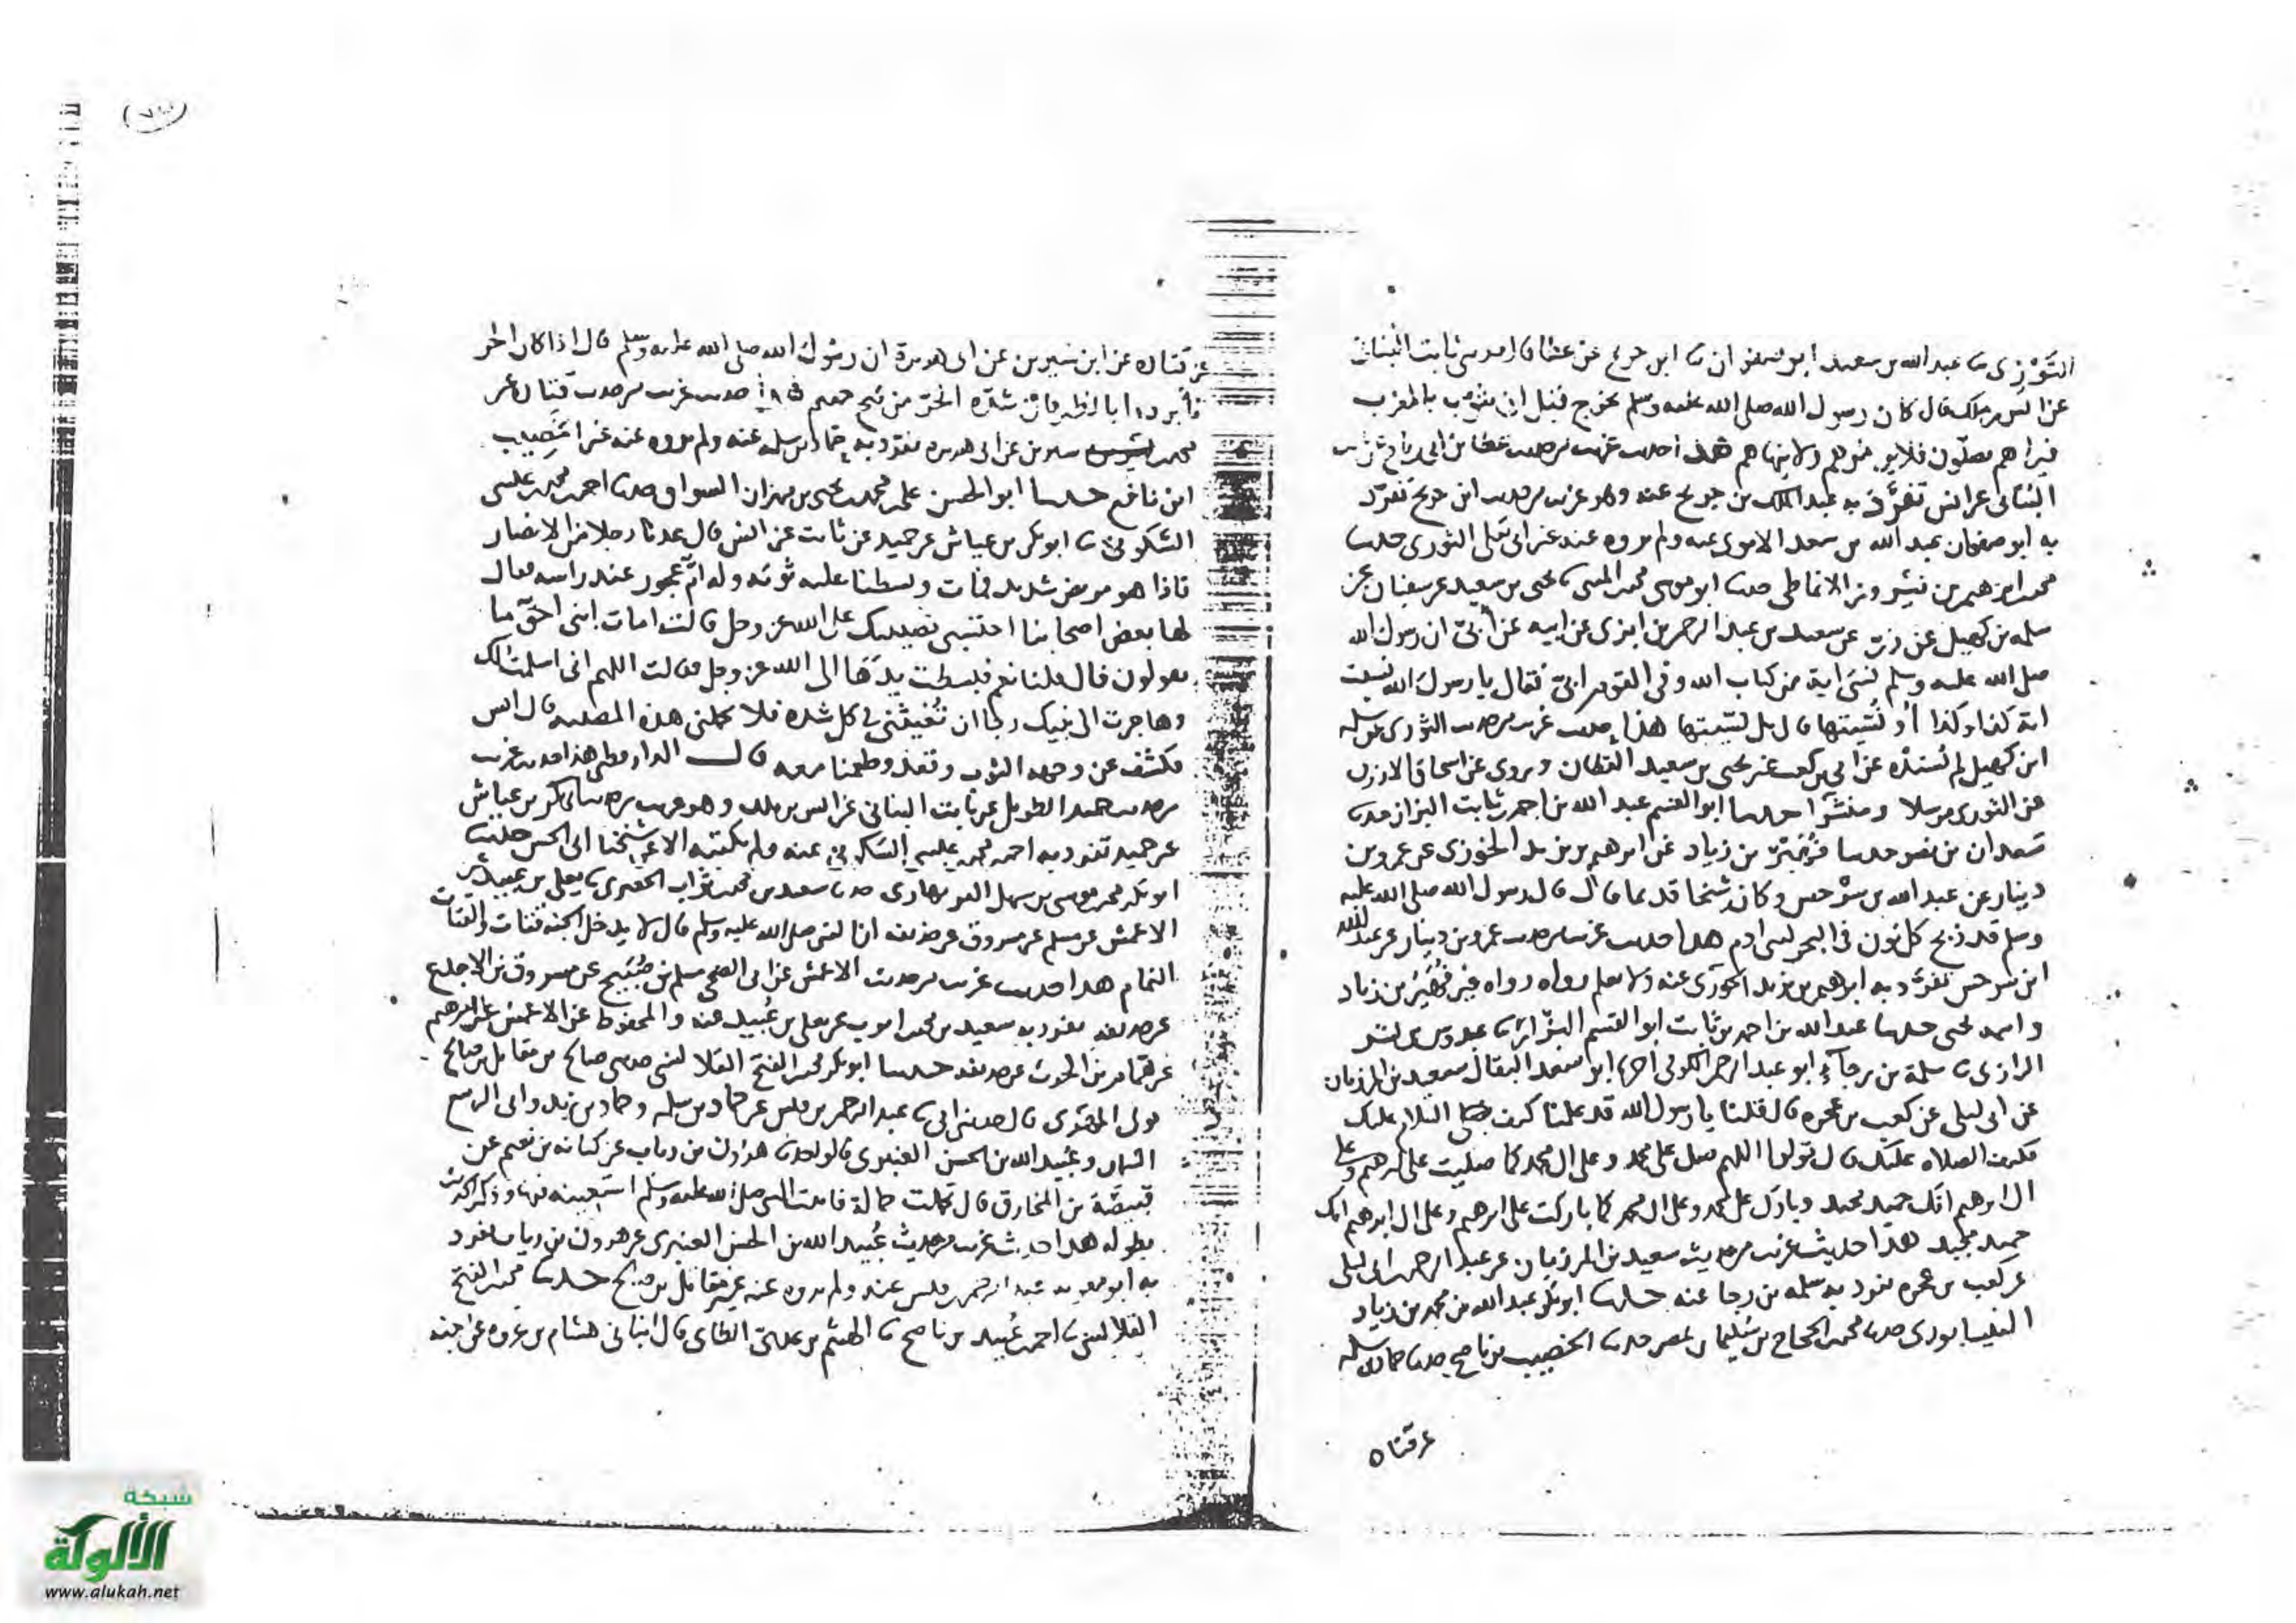 التوزي نا عبد الله بن سعيد ابو صفوان نا ابن جريج عن عطا نا ثابت البناني
عن انس بن ملك قال كان رسول الله صلى الله عليه وسلم يخرج قبل ان يثوب بالمغرب
فيراهم يصلون فلا يومرهم ولا ينهاهم هذا حديث غريب من حديث عطا بن ابي رباح عن ثابت
البناني عن انس تفرد به عبد الملك بن جريج عنه وهو غريب من حديث ابن جريج تفرد
به ابو صفوان عبد الله بن سعيد الاموي عنه ولم يروه عنه غير ابي يعلى التوزي حدثنا
محمد بن ابرهيم بن نيروز الانماطي حدثنا ابو موسى محمد بن المثنى نا يحيى بن سعيد عن سفيان عن
سلمه بن كهيل عن ذر عن سعيد بن عبد الرحمن بن ابزى عن ابيه عن ابي ان رسول الله
صلى الله عليه وسلم نسي اية من كتاب الله وفي القوم ابي فقال يا رسول الله نسيت
اية كذا وكذا او نسيتها قال بل نسيتها هذا حديث غريب من حديث الثوري عن سلمه
ابن كهيل لم يسنده عن ابي بن كعب غير يحيى بن سعيد القطان وروي عن اسحاق الازرق
عن الثوري مرسلا حدثنا ابو القسم عبد الله بن احمد بن ثابت البزاز حدثنا
سعدان بن نصر حدثنا فهير بن زياد عن ابرهيم بن يزيد الخوزي عن عمرو بن
دينار عن عبد الله بن سرجس وكان شيخا قديما قال قال رسول الله صلى الله عليه
وسلم قد ذبح كل نون في البحر لبني ادم هذا حديث غريب من حديث عمرو بن دينار عن عبد الله
ابن سرجس تفرد به ابرهيم بن يزيد الخوزي عنه ولا نعلم رواه غير فهير بن زياد
حدثنا عبد الله بن احمد بن ثابت ابو القسم البزاز نا عبدوس بن بشر
الرازي نا سلمة بن رجاء ابو عبد الرحمن الكوفي ابو سعد البقال سعيد بن المرزبان
عن ابي ليلى عن كعب بن عجره قال قلنا يا رسول الله قد علمنا كيف السلام عليك
فكيف الصلاه عليك قال قولوا اللهم صل على محمد وعلى ال محمد كما صليت على ابرهيم وعلى
ال ابرهيم انك حميد مجيد وبارك على محمد وعلى ال محمد كما باركت على ابرهيم وعلى ال ابرهيم انك
حميد مجيد هذا حديث غريب من حديث سعيد بن المرزبان عن عبد الرحمن بن ابي ليلى
عن كعب بن عجره تفرد به سلمه بن رجا عنه حدثنا ابو بكر عبد الله بن محمد بن زياد
النيسابوري حدثنا محمد بن الحجاج بن سليمان بمصر حدثنا الخصيب بن ناصح حدثنا حماد بن سلمه
عن قتاده
عن قتاده عن ابن سيرين عن ابي هريرة ان رسول الله صلى الله عليه وسلم قال اذا كان الحر
فأبردوا بالظهر فان شدة الحر من فيح جهنم هذا حديث غريب من حديث قتاده عن
محمد بن سيرين عن ابي هريره تفرد به حماد بن سلمه عنه ولم يروه عنه غير الخصيب
ابن ناصح حدثنا ابو الحسن علي بن محمد بن يحيى بن مهران السواق حدثنا احمد بن محمد بن عيسى
السكوني نا ابو بكر بن عياش عن حميد عن ثابت عن انس قال عدنا رجلا من الانصار
فاذا هو مريض شديد فمات وبسطنا عليه ثوبه وله ام عجوز عند راسه فقال
لها بعض اصحابنا احتسبي مصيبتك على الله عز وجل قالت امات ابني احق ما
تقولون قال قلنا نعم فبسطت يدها الى الله عز وجل فقالت اللهم اني اسلمت لك
وهاجرت الى نبيك رجا ان تغيثني في كل شده فلا تحملني هذه المصيبه قال انس
فكشف عن وجهه الثوب وقعد وطعمنا معه قال الدارقطني هذا حديث غريب
من حديث حميد الطويل عن ثابت البناني عن انس بن ملك وهو غريب من حديث ابي بكر بن عياش
عن حميد تفرد به احمد بن محمد بن عيسى السكوني عنه ولم نكتبه الا عن شيخنا ابي الحسن حدثنا
ابو بكر محمد بن موسى بن سهل البربهاري حدثنا سعيد بن محمد بن ثواب الحصري نا يعلى بن عبيد عن
الاعمش عن مسلم عن مسروق عن حذيفه ان النبي صلى الله عليه وسلم قال لا يدخل الجنة قتات والقتات
النمام هذا حديث غريب من حديث الاعمش عن ابي الضحى مسلم بن صبيح عن مسروق بن الاجدع
عن حذيفه تفرد به سعيد بن محمد بن ثواب عن يعلى بن عبيد عنه والمحفوظ عن الاعمش عن ابرهيم
عن همام بن الحرث عن حذيفه حدثنا ابو بكر محمد بن الفتح القلانسي حدثني صالح بن مقاتل بن صالح
مولى قال حدثني ابي نا عبد الرحمن بن قيس عن حماد بن سلمه وحماد بن زيد وابي الربيع
السمان وعبيد الله بن الحسن العنبري قالوا حدثنا هرون بن رياب عن كنانه بن نعيم عن
قبيصة بن المخارق قال تحملت حمالة فاتيت النبي صلى الله عليه وسلم استعينه فيها وذكر الحديث
بطوله هذا حديث غريب من حديث عبيد الله بن الحسن العنبري عن هرون بن رياب تفرد
به ابو معويه عبد الرحمن بن قيس عنه ولم يروه عنه غير مقاتل بن صالح حدثنا محمد بن الفتح
القلانسي نا احمد بن عبيد بن ناصح نا الهيثم بن عدي الطاي قال انباني هشام بن عروه عن اخيه
شبكة
الألوكة
www.alukah.net